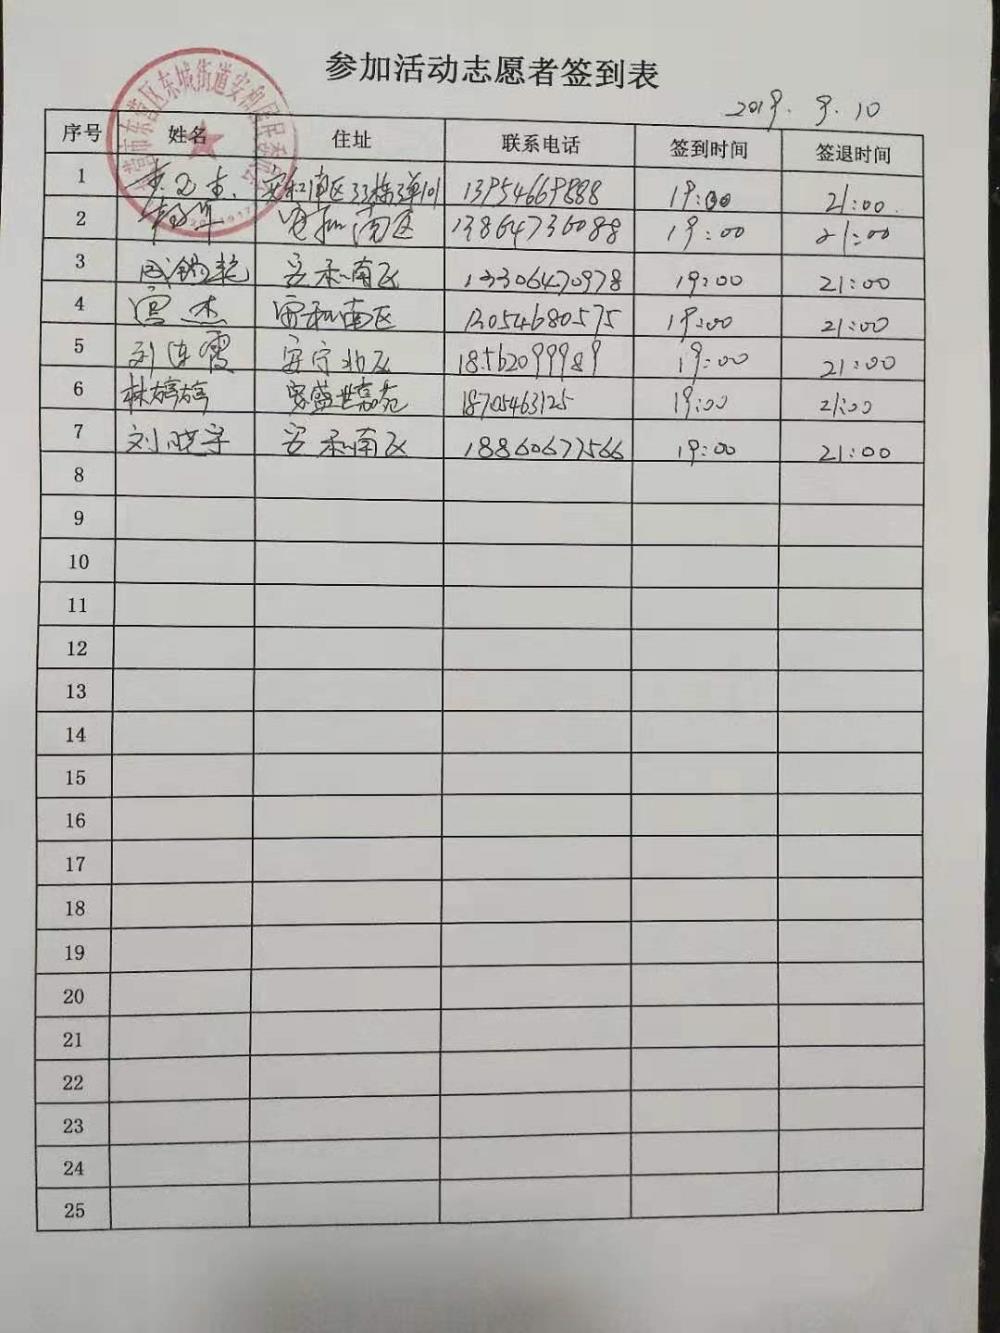 参加活动志愿者签到表
2019. 9. 10
序号 姓名 住址 联系电话 签到时间 签退时间
1 安和南区33栋3单101 13954669888 19:00 21:00
2 安和南区 13864736088 19:00 21:00
3 安和南区 13306470978 19:00 21:00
4 宫杰 安和南区 13054680575 19:00 21:00
5 刘连霞 安宁北区 18562099989 19:00 21:00
6 林婷婷 盛世嘉苑 18705463125 19:00 21:00
7 刘晓宇 安和南区 18860677566 19:00 21:00
8
9
10
11
12
13
14
15
16
17
18
19
20
21
22
23
24
25